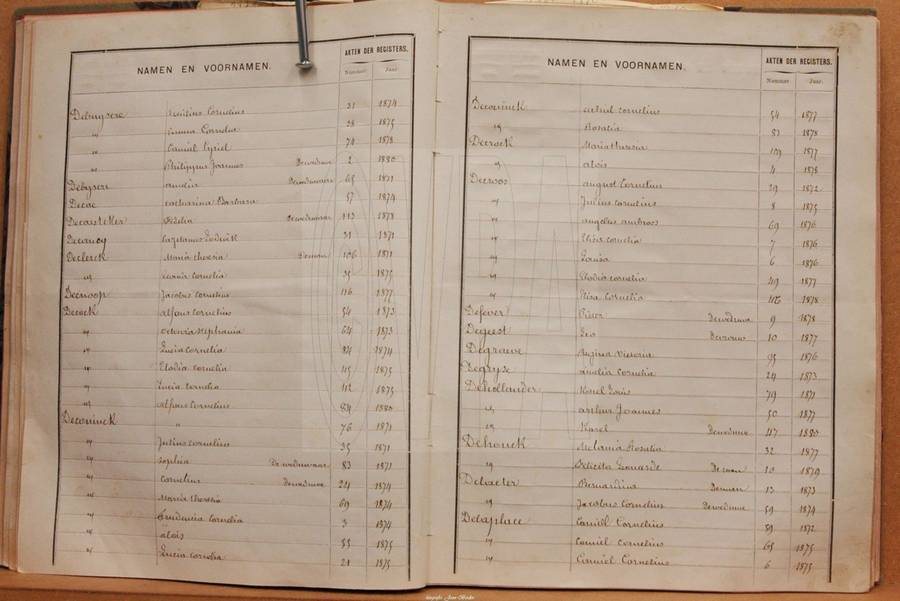 NAMEN EN VOORNAMEN. AKTEN DER REGISTERS.
Nummer Jaar
Debuysere Cornelius 21 1874
" Emma Cornelia 28 1875
" Camiel Cyriel 74 1878
" Philippus Joannes 2 1880
65 1871
Decae Catharina Barbara 57 1874
Fidelia 113 1878
31 1871
Declerck Maria Theresia 106 1871
" cornelia 1875
Decroop Jacobus Cornelius 116 1877
Decock Alfons Cornelius 54 1873
" Octavia Stephania 64 1873
" Lucia Cornelia 84 1874
" Elodia Cornelia 115 1875
" Lucia Cornelia 112 1875
" Alfons Cornelius 84 1880
Deconinck " 76 1871
" Julius Cornelius 35 1871
" Sophia De weduwaar 83 1871
" Cornelius Deweduwe 24 1874
" Maria Theresia 69 1874
" Prudencia Cornelia 3 1874
" Alois 55 1875
" Lucia Cornelia 21 1875
NAMEN EN VOORNAMEN. AKTEN DER REGISTERS.
Nummer Jaar
Deconinck cornelius 54 1877
" Rosalia 83 1878
Decrock Maria Theresia 104 1877
" Alois 4 1878
Decroos August Cornelius 29 1872
" Julius Cornelius 8 1875
" Angelus Ambros 69 1876
" Elisa Cornelia 7 1876
" Louisa 6 1876
" Elodia Cornelia 49 1877
" Elisa Cornelia 1878
Defever Deweduwe 9 1878
Degeest Leo 10 1877
Degraeve Regina Victoria 95 1876
Degryse Amelia Cornelia 24 1873
Dehollander Karel Louis 79 1871
" Arthur Joannes 50 1877
" Karel Deweduwe 117 1880
Dehouck Melania Rosalia 32 1877
" Felicita Leonarde De man 10 1879
Delaeter Bernardina Deman 13 1873
" Jacobus Cornelius Deweduwe 59 1874
Delaplace Camiel Cornelius 59 1872
" Camiel Cornelius 65 1875
" Camiel Cornelius 6 1875